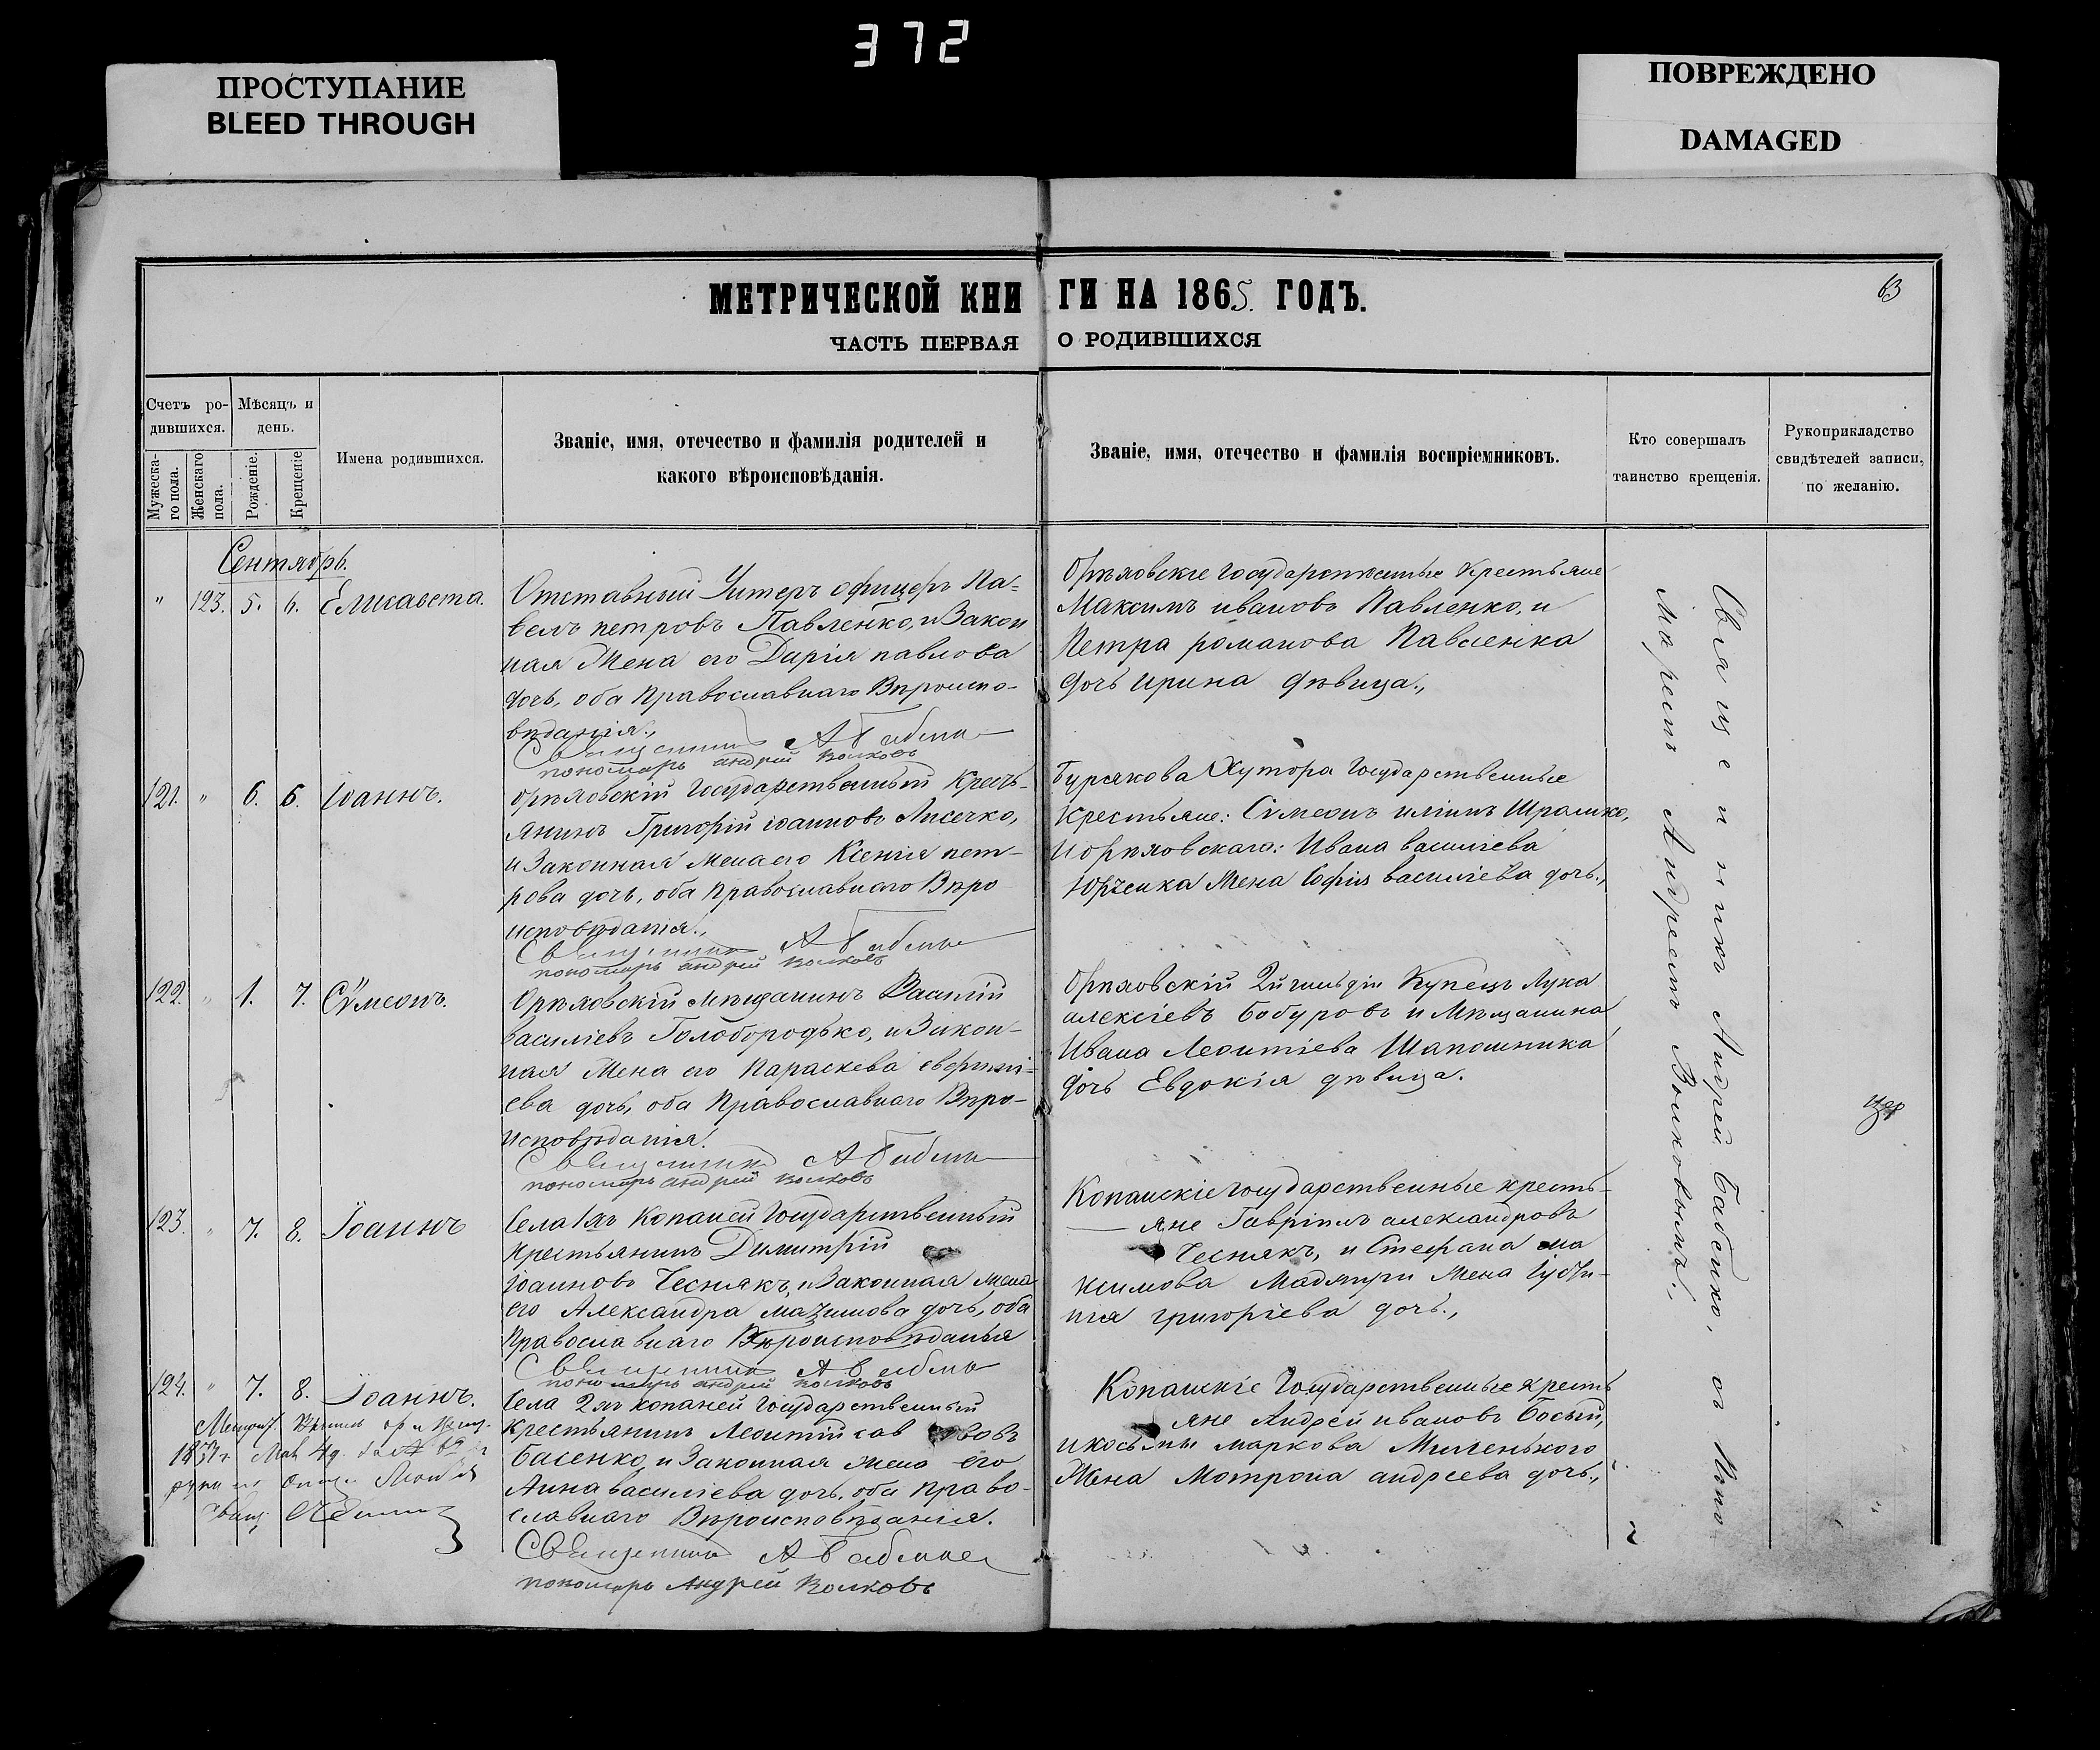 372
ПРОСТУПАНИЕ
BLEED THROUGH
ПОВРЕЖДЕНО
DAMAGED
МЕТРИЧЕСКОЙ КНИГИ НА 1865. ГОДЪ.
63
ЧАСТЬ ПЕРВАЯ О РОДИВШИХСЯ
Счетъ ро-
дившихся.
Мужеска-
го пола.
Женскаго
пола.
Мѣсяцъ и
день.
Рожденіе.
Крещеніе
Имена родившихся.
Званіе, имя, отечество и фамилія родителей и
какого вѣроисповѣданія.
Званіе, имя, отечество и фамилія воспріемниковъ.
Кто совершалъ
таинство крещенія.
Рукоприкладство
свидѣтелей записи,
по желанію.
Сентябрь.
" 123. 5. 6. Елисавета.
Отставный Унтеръ офицеръ Па-
велъ петровъ Павленко, и Закон
ная Жена его Дарія павлова
дочь, оба Православнаго Вѣроиспо-
вѣданія.,
Священникъ А Бабенко
пономарь андрей волковъ
Орѣховскіе государственные Крестьяне
Максимъ ивановъ Павленко, и
Петра романова Павленка
дочь ирина дѣвица.,
121. " 6. 6. Іоаннъ.
Орѣховскій Государственный Кресть-
янинъ Григорій іоанновъ Лисечко,
и Законная Жена его Ксенія пет-
рова дочь, оба Православнаго Вѣро
исповѣданія.,
Священникъ А Бабенко
пономарь андрей волковъ
Бурякова Хутора Государственные
Крестьяне: Сѵмеонъ иліинъ Шрамко,
и орѣховскаго: Ивана василіева
Юрченка Жена Софія василіева дочь.,
122. " 1. 7. Сѵмеонъ.
Орѣховскій мѣщанинъ Василій
василіевъ Голобородько, и Закон-
ная Жена его Параскева
ева дочь, оба Православнаго Вѣро-
исповѣданія.
Священникъ А Бабенко
пономарь андрей волковъ
Орѣховскій 2й гильдіи Купецъ Лука
алексіевъ Бобуровъ и Мѣщанина
Ивана Леонтіева Шапошника
дочь Евдокія дѣвица.
123. " 7. 8. Іоаннъ
Села 1хъ Копаней Государственный
крестьянинъ Димитрій
іоанновъ Чеснякъ, и Законная жена
его Александра дочь, оба
Православнаго Вѣроисповѣданія
Священникъ А Бабенко
пономарь андрей волковъ
Копанскіе государственные кресть-
яне Гавріилъ александровъ
Чеснякъ, и Стефана ма
ксимова Жена
нія григоріева дочь.,
124. " 7. 8. Іоаннъ.
Села 2хъ копаней государственный
крестьянинъ Леонтій сав вовъ
Басенко, и Законная жена его
Анна василіева дочь, оба право-
славнаго Вѣроисповѣданія.
Священникъ А Бабенко
пономарь Андрей Волковъ
Копанскіе Государственные кресть
яне Андрей ивановъ Босый,
и косьмы маркова Миленького
Жена Матрона андреева дочь.,
Священникъ Андрей Бабенко, съ Поно
маремъ Андреемъ Волковымъ.,